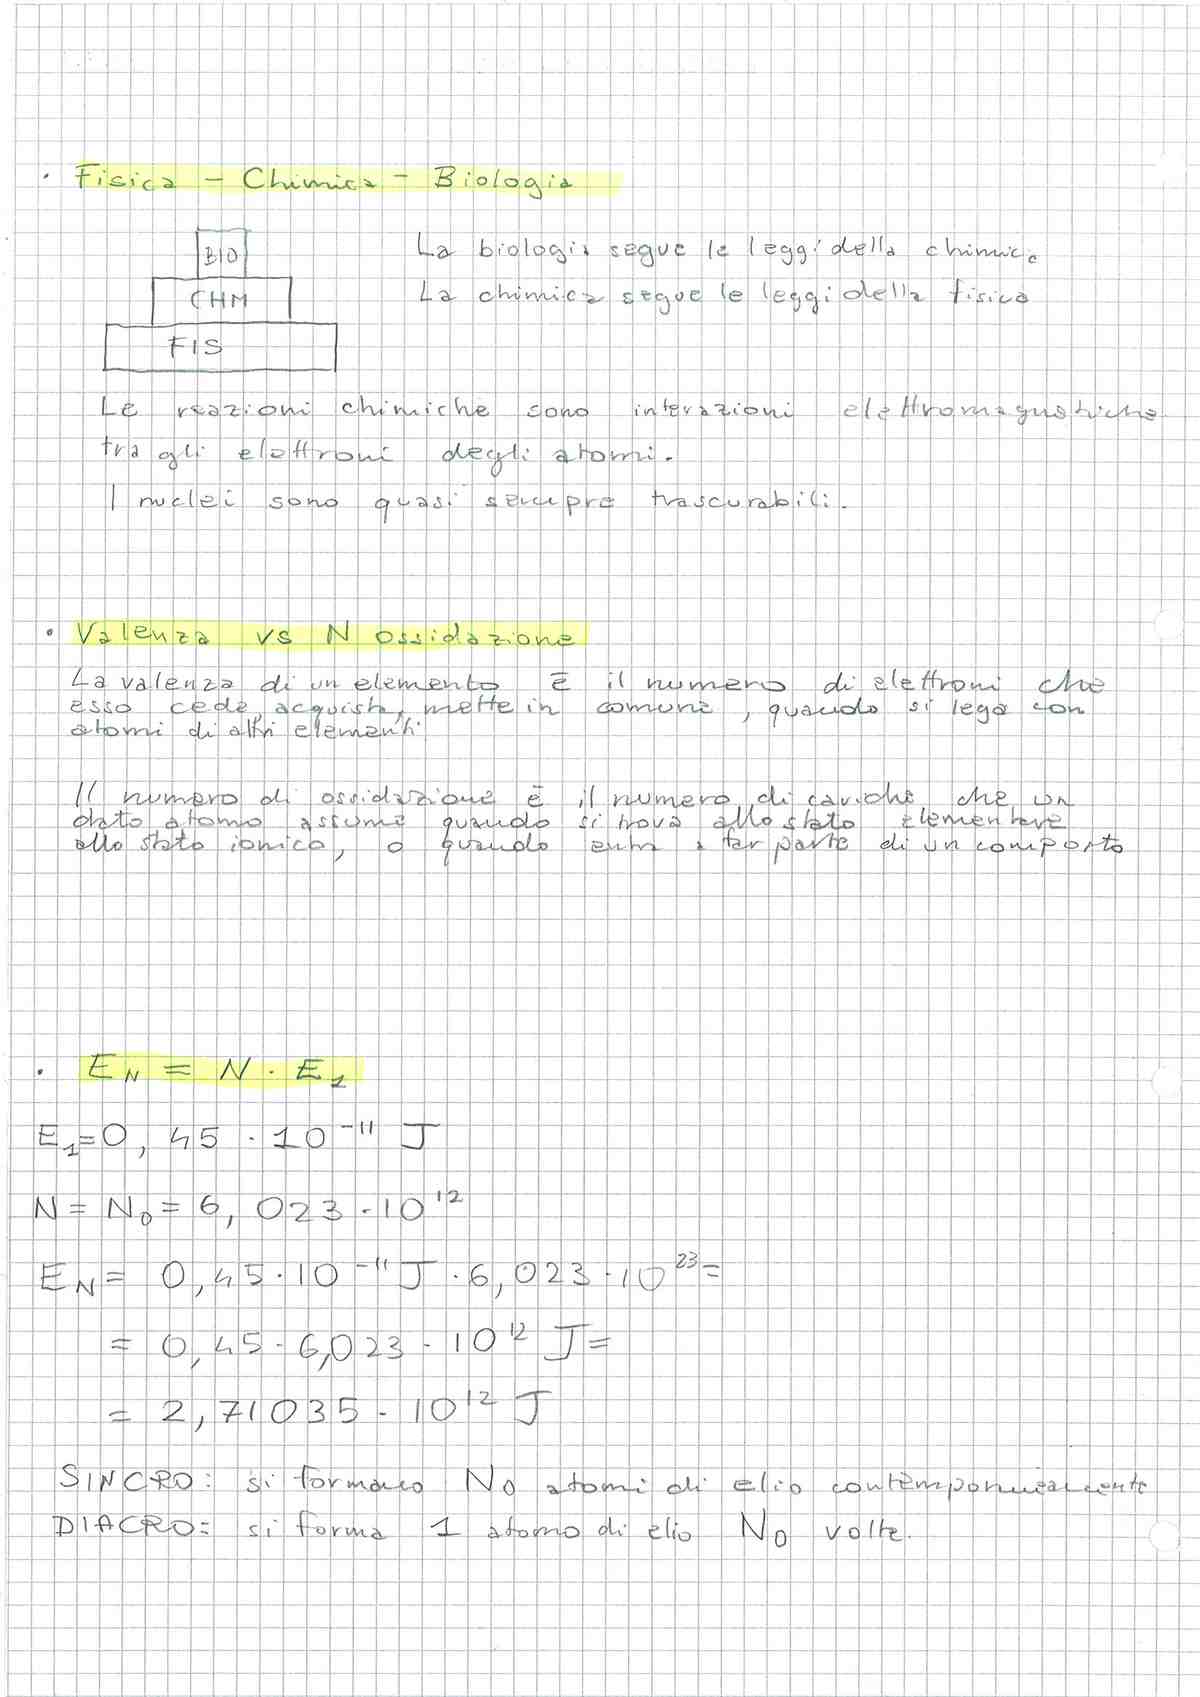 · Fisica - Chimica - Biologia
BIO
CHM
FIS
La biologia segue le leggi della chimica
La chimica segue le leggi della fisica
Le reazioni chimiche sono interazioni elettromagnetiche
tra gli elettroni degli atomi.
I nuclei sono quasi sempre trascurabili.
· Valenza vs N ossidazione
La valenza di un elemento è il numero di elettroni che
esso cede, acquista, mette in comune, quando si lega con
atomi di altri elementi
Il numero di ossidazione è il numero di cariche che un
dato atomo assume quando si trova allo stato elementare
allo stato ionico, o quando entra a far parte di un composto
· E_N = N · E_1
E_1 = 0,45 · 10^-11 J
N = N_0 = 6,023 · 10^12
E_N = 0,45 · 10^-11 J · 6,023 · 10^23 =
= 0,45 · 6,023 · 10^12 J =
= 2,71035 · 10^12 J
SINCRO: si formano N_0 atomi di elio contemporaneamente
DIACRO: si forma 1 atomo di elio N_0 volte.